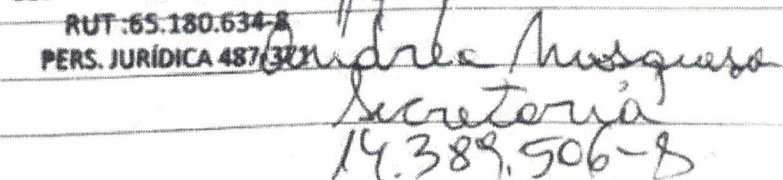 RUT :65.180.634-8
PERS. JURÍDICA 487371
Andrea Mosquera
Secretaria
14.389.506-8